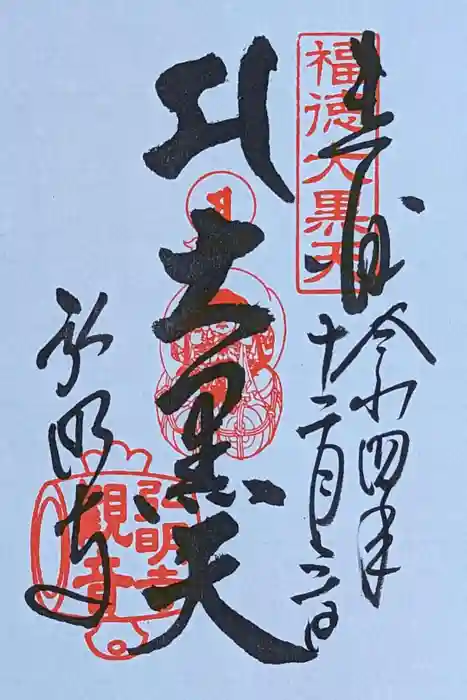 奉拝
福徳大黒天
令和四年
十二月六日
大黒天
弘明寺
弘明寺
観音